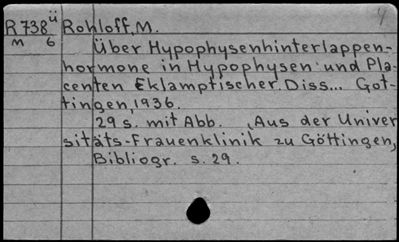 4
R 738 ü Rohloff, M.
M 6
Über Hypophysenhinterlappen-
hormone in Hypophysen und Pla-
centen Eklamptischer. Diss... Göt-
tingen, 1936.
29 s. mit Abb. ,Aus der Univer
sitäts-Frauenklinik zu Göttingen,
Bibliogr. s. 29.